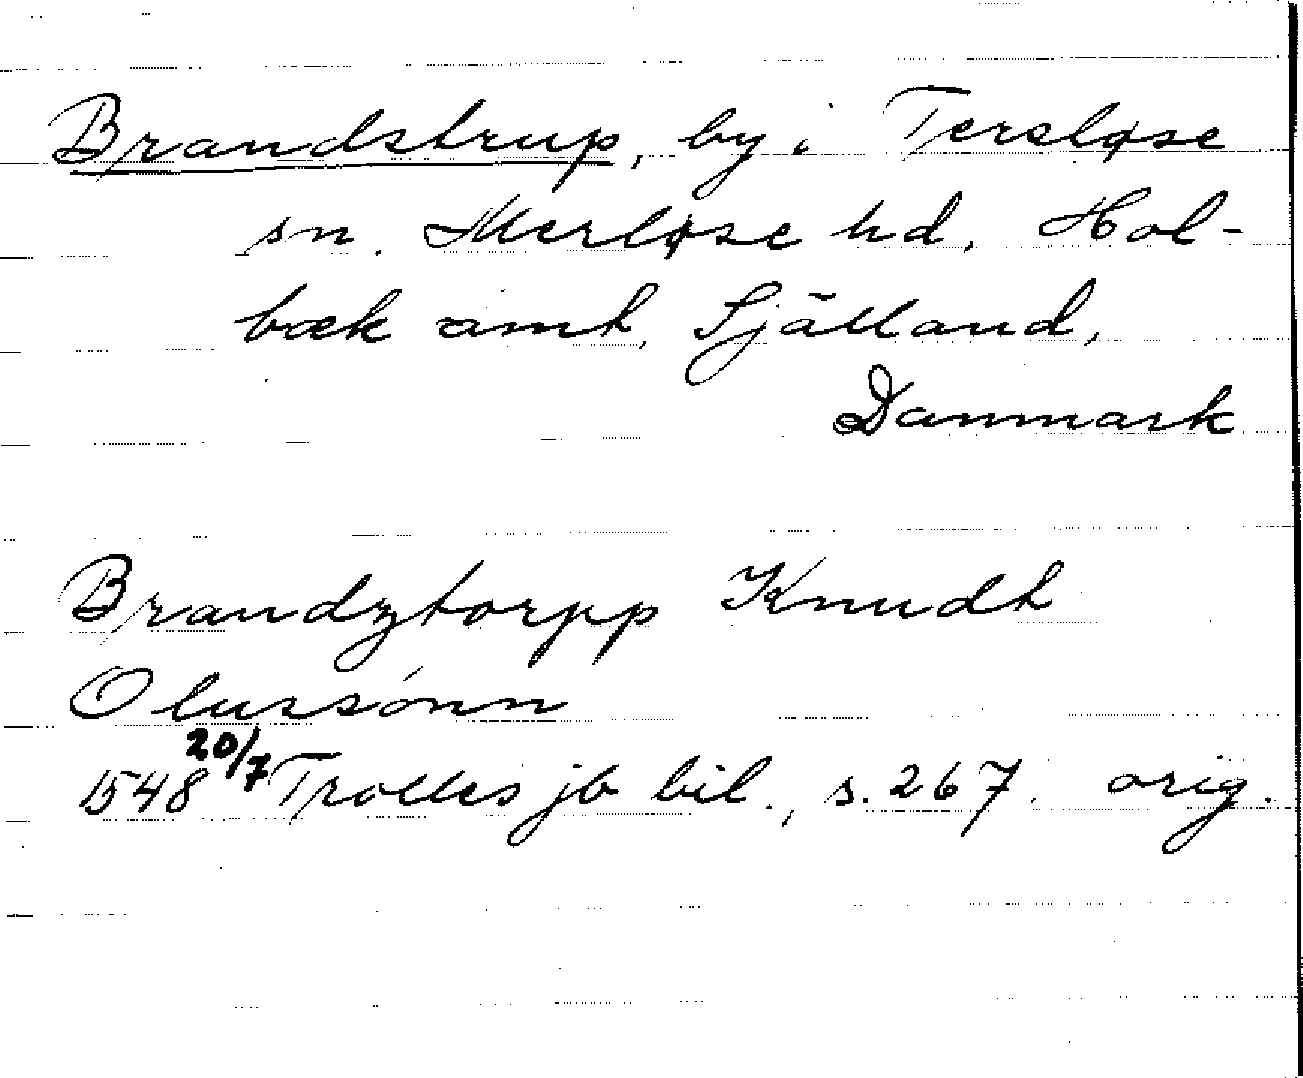 Brandstrup, by i Tersløse
sn. Merløse hd, Hol-
bæk amt, Själland,
Danmark
Brandztorpp Knudt
Olurssónn
1548 20/7 Trolles jb bil., s. 267. orig.